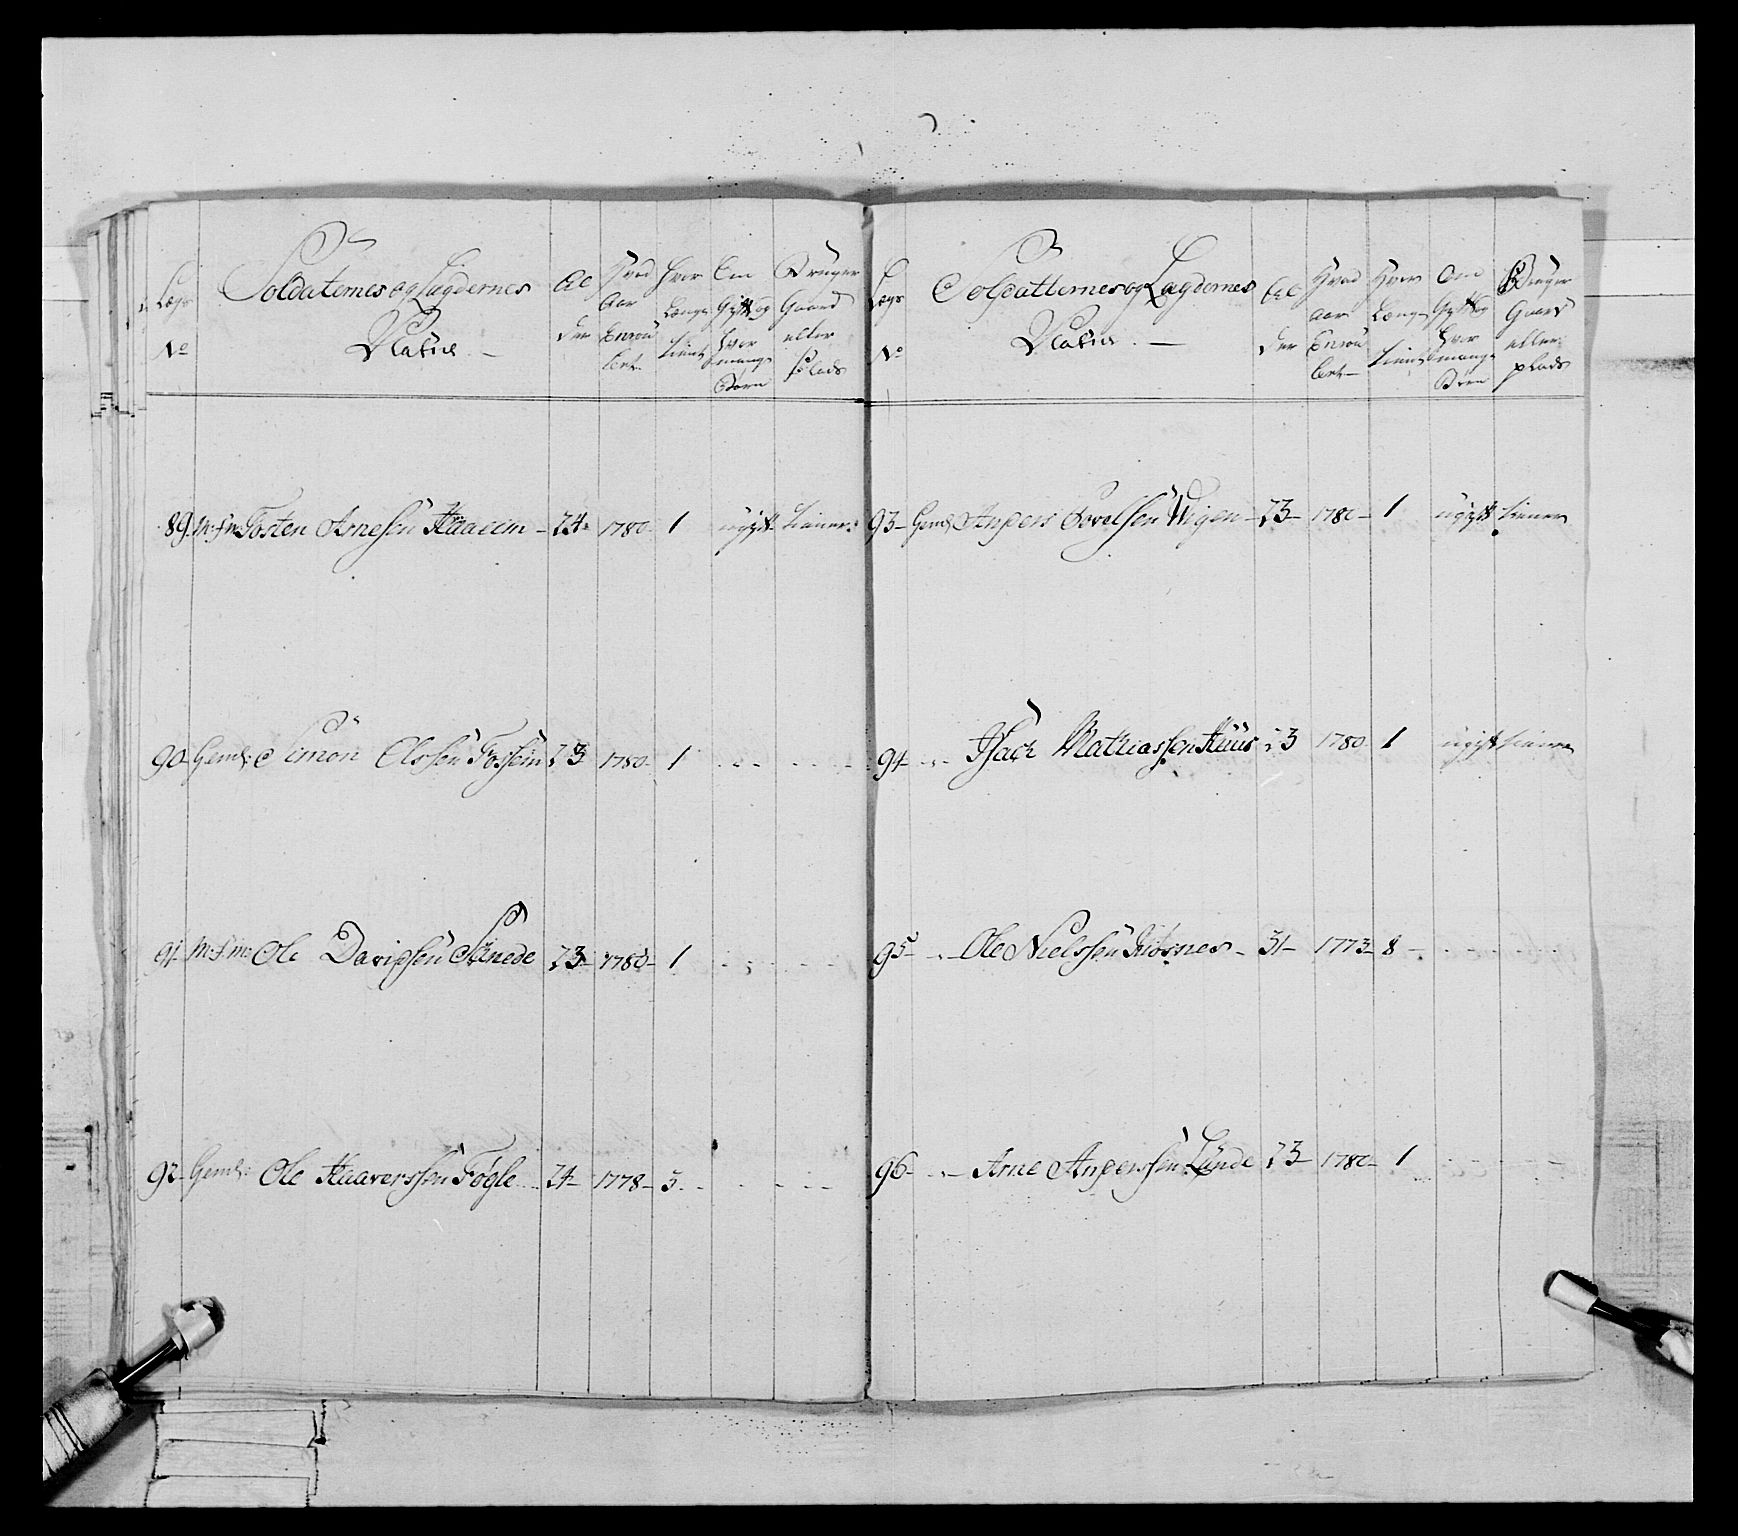 Lægs No
Soldaternes og Lægdernes Natie. —
Al der
Hvad Aar Enroulert
Hvor Længe tient
Om Gift og hvor mange Børn
Bruger Gaard eller Plads
89. Tosten Arnesen Haaeim – 24 – 1780. 1 ugift tiener
90. Geml: Simon Olssen Fossem 23 1780 1 . . . .
91. Ole Davidsen 23 – 1780 – 1 . . . .
92. Geml: Ole Haaverssen Fogle 24 – 1778 – 3. . . . .
Lægs No
Soldatternes og Lægdernes Natie. —
Al der
Hvad Aar Enroulert –
Hvor Længe tient
Om Gift og hvor mange Børn
Bruger Gaard eller plads
93 – Geml Anders Povelsen Wigen – 23 – 1780 – 1 ugift tiener
94 . . – Isach Mathiassen Huus 23 1780 1 ugift tiener
95 – . . – Ole Nielssen – 31 – 1773 – 8 – . . .
96 – . . – Arne Anderssen Lunde 23 – 1780 – 1 . . .